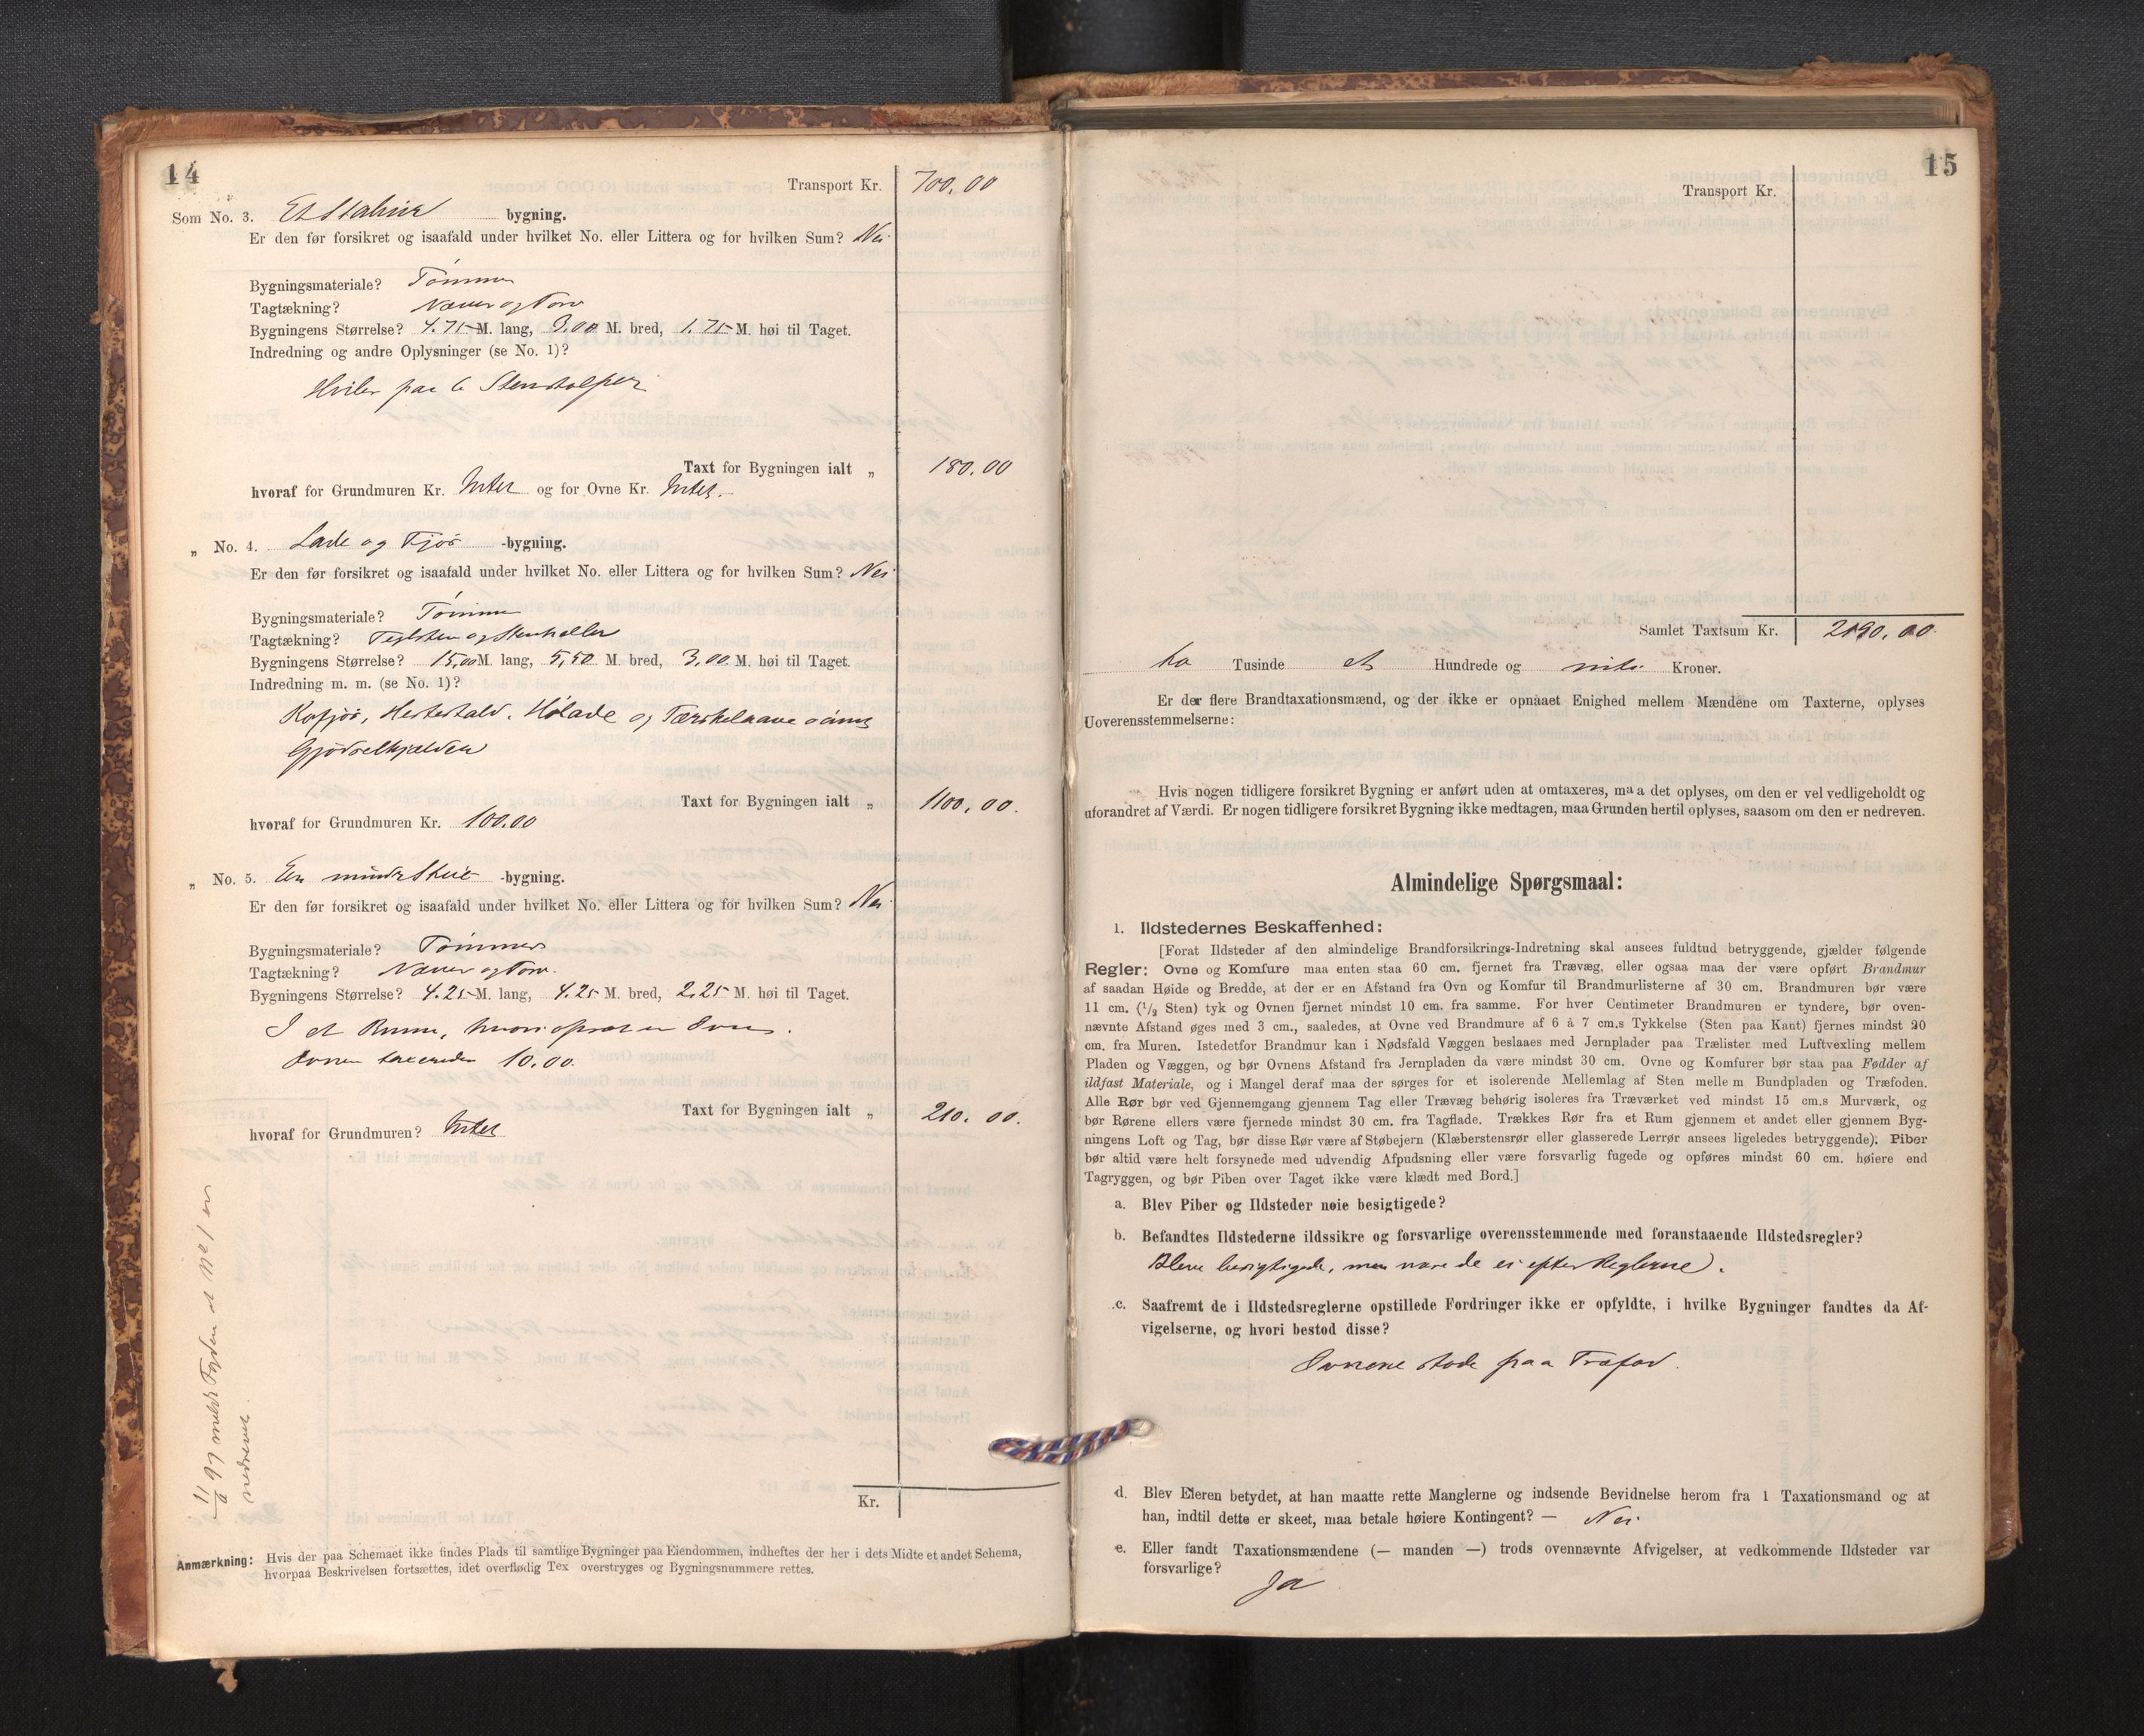 14
Transport Kr. 700,00
Som No. 3. Et Stabur bygning.
Er den før forsikret og isaafald under hvilket No. eller Littera og for hvilken Sum? Nei
Bygningsmateriale? Tømmer
Tagtækning? Næver og Torv
Bygningens Størrelse? 4.75 M. lang, 3.00 M. bred, 1.75 M. høi til Taget.
Indredning og andre Oplysninger (se No. 1)?
Hviler paa 6 Stenstolper
Taxt for Bygningen ialt „ 180.00
hvoraf for Grundmuren Kr. Intet og for Ovne Kr. Intet.
„ No. 4. Lade og Fjøs -bygning.
Er den før forsikret og isaafald under hvilket No. eller Littera og for hvilken Sum? Nei
Bygningsmateriale? Tømmer
Tagtækning? Teglsten og Stenheller
Bygningens Størrelse? 15,00 M. lang, 5,50 M. bred, 3,00 M. høi til Taget.
Indredning m. m. (se No. 1)?
Kofjøs, Hestestald, Hølade og Tærskelaave samt
Gjødselkjælder
Taxt for Bygningen ialt „ 1100,00.
hvoraf for Grundmuren Kr. 100.00
„ No. 5. En mindre Stue -bygning.
Er den før forsikret og isaafald under hvilket No. eller Littera og for hvilken Sum? Nei
Bygningsmateriale? Tømmer
Tagtækning? Næver og Torv.
Bygningens Størrelse? 4.25 M. lang, 4.25 M. bred, 2.25 M. høi til Taget.
I et Rum, hvori opsat en Ovn.
Ovnen taxeredes 10.00.
Taxt for Bygningen ialt „ 210.00.
hvoraf for Grundmuren? Intet
11/6 97 melder Fogden at No 5 er
nedrevet.
Kr.
Anmærkning: Hvis der paa Schemaet ikke findes Plads til samtlige Bygninger paa Eiendommen, indheftes der her i dets Midte et andet Schema,
hvorpaa Beskrivelsen fortsættes, idet overflødig Tex overstryges og Bygningsnummere rettes.
15
Transport Kr.
Samlet Taxtsum Kr. 2190.00.
to Tusinde et Hundrede og niti Kroner.
Er der flere Brandtaxationsmænd, og der ikke er opnaaet Enighed mellem Mændene om Taxterne, oplyses
Uoverensstemmelserne:
Hvis nogen tidligere forsikret Bygning er anført uden at omtaxeres, maa det oplyses, om den er vel vedligeholdt og
uforandret af Værdi. Er nogen tidligere forsikret Bygning ikke medtagen, maa Grunden hertil oplyses, saasom om den er nedreven.
Almindelige Spørgsmaal:
1. Ildstedernes Beskaffenhed:
[Forat Ildsteder af den almindelige Brandforsikrings-Indretning skal ansees fuldtud betryggende, gjælder følgende
Regler: Ovne og Komfure maa enten staa 60 cm. fjernet fra Trævæg, eller ogsaa maa der være opført Brandmur
af saadan Høide og Bredde, at der er en Afstand fra Ovn og Komfur til Brandmurlisterne af 30 cm. Brandmuren bør være
11 cm. (1/2 Sten) tyk og Ovnen fjernet mindst 10 cm. fra samme. For hver Centimeter Brandmuren er tyndere, bør oven-
nævnte Afstand øges med 3 cm., saaledes, at Ovne ved Brandmure af 6 à 7 cm.s Tykkelse (Sten paa Kant) fjernes mindst 20
cm. fra Muren. Istedetfor Brandmur kan i Nødsfald Væggen beslaaes med Jernplader paa Trælister med Luftvexling mellem
Pladen og Væggen, og bør Ovnens Afstand fra Jernpladen da være mindst 30 cm. Ovne og Komfurer bør staa paa Fødder af
ildfast Materiale, og i Mangel deraf maa der sørges for et isolerende Mellemlag af Sten mellem Bundpladen og Træfoden.
Alle Rør bør ved Gjennemgang gjennem Tag eller Trævæg behørig isoleres fra Træværket ved mindst 15 cm.s Murværk, og
bør Rørene ellers være fjernede mindst 30 cm. fra Tagflade. Trækkes Rør fra et Rum gjennem et andet eller gjennem Byg-
ningens Loft og Tag, bør disse Rør være af Støbejern (Klæberstensrør eller glasserede Lerrør ansees ligeledes betryggende). Piber
bør altid være helt forsynede med udvendig Afpudsning eller være forsvarlig fugede og opføres mindst 60 cm. høiere end
Tagryggen, og bør Piben over Taget ikke være klædt med Bord.]
a. Blev Piber og Ildsteder nøie besigtigede?
b. Befandtes Ildstederne ildssikre og forsvarlige overensstemmende med foranstaaende Ildstedsregler?
Bleve besigtigede, men vare de ei efter Reglerne.
c. Saafremt de i Ildstedsreglerne opstillede Fordringer ikke er opfyldte, i hvilke Bygninger fandtes da Af-
vigelserne, og hvori bestod disse?
Ovnene stode paa Træfod.
d. Blev Eieren betydet, at han maatte rette Manglerne og indsende Bevidnelse herom fra 1 Taxationsmand og at
han, indtil dette er skeet, maa betale høiere Kontingent? — Nei
e. Eller fandt Taxationsmændene (— manden —) trods ovennævnte Afvigelser, at vedkommende Ildsteder var
forsvarlige? Ja